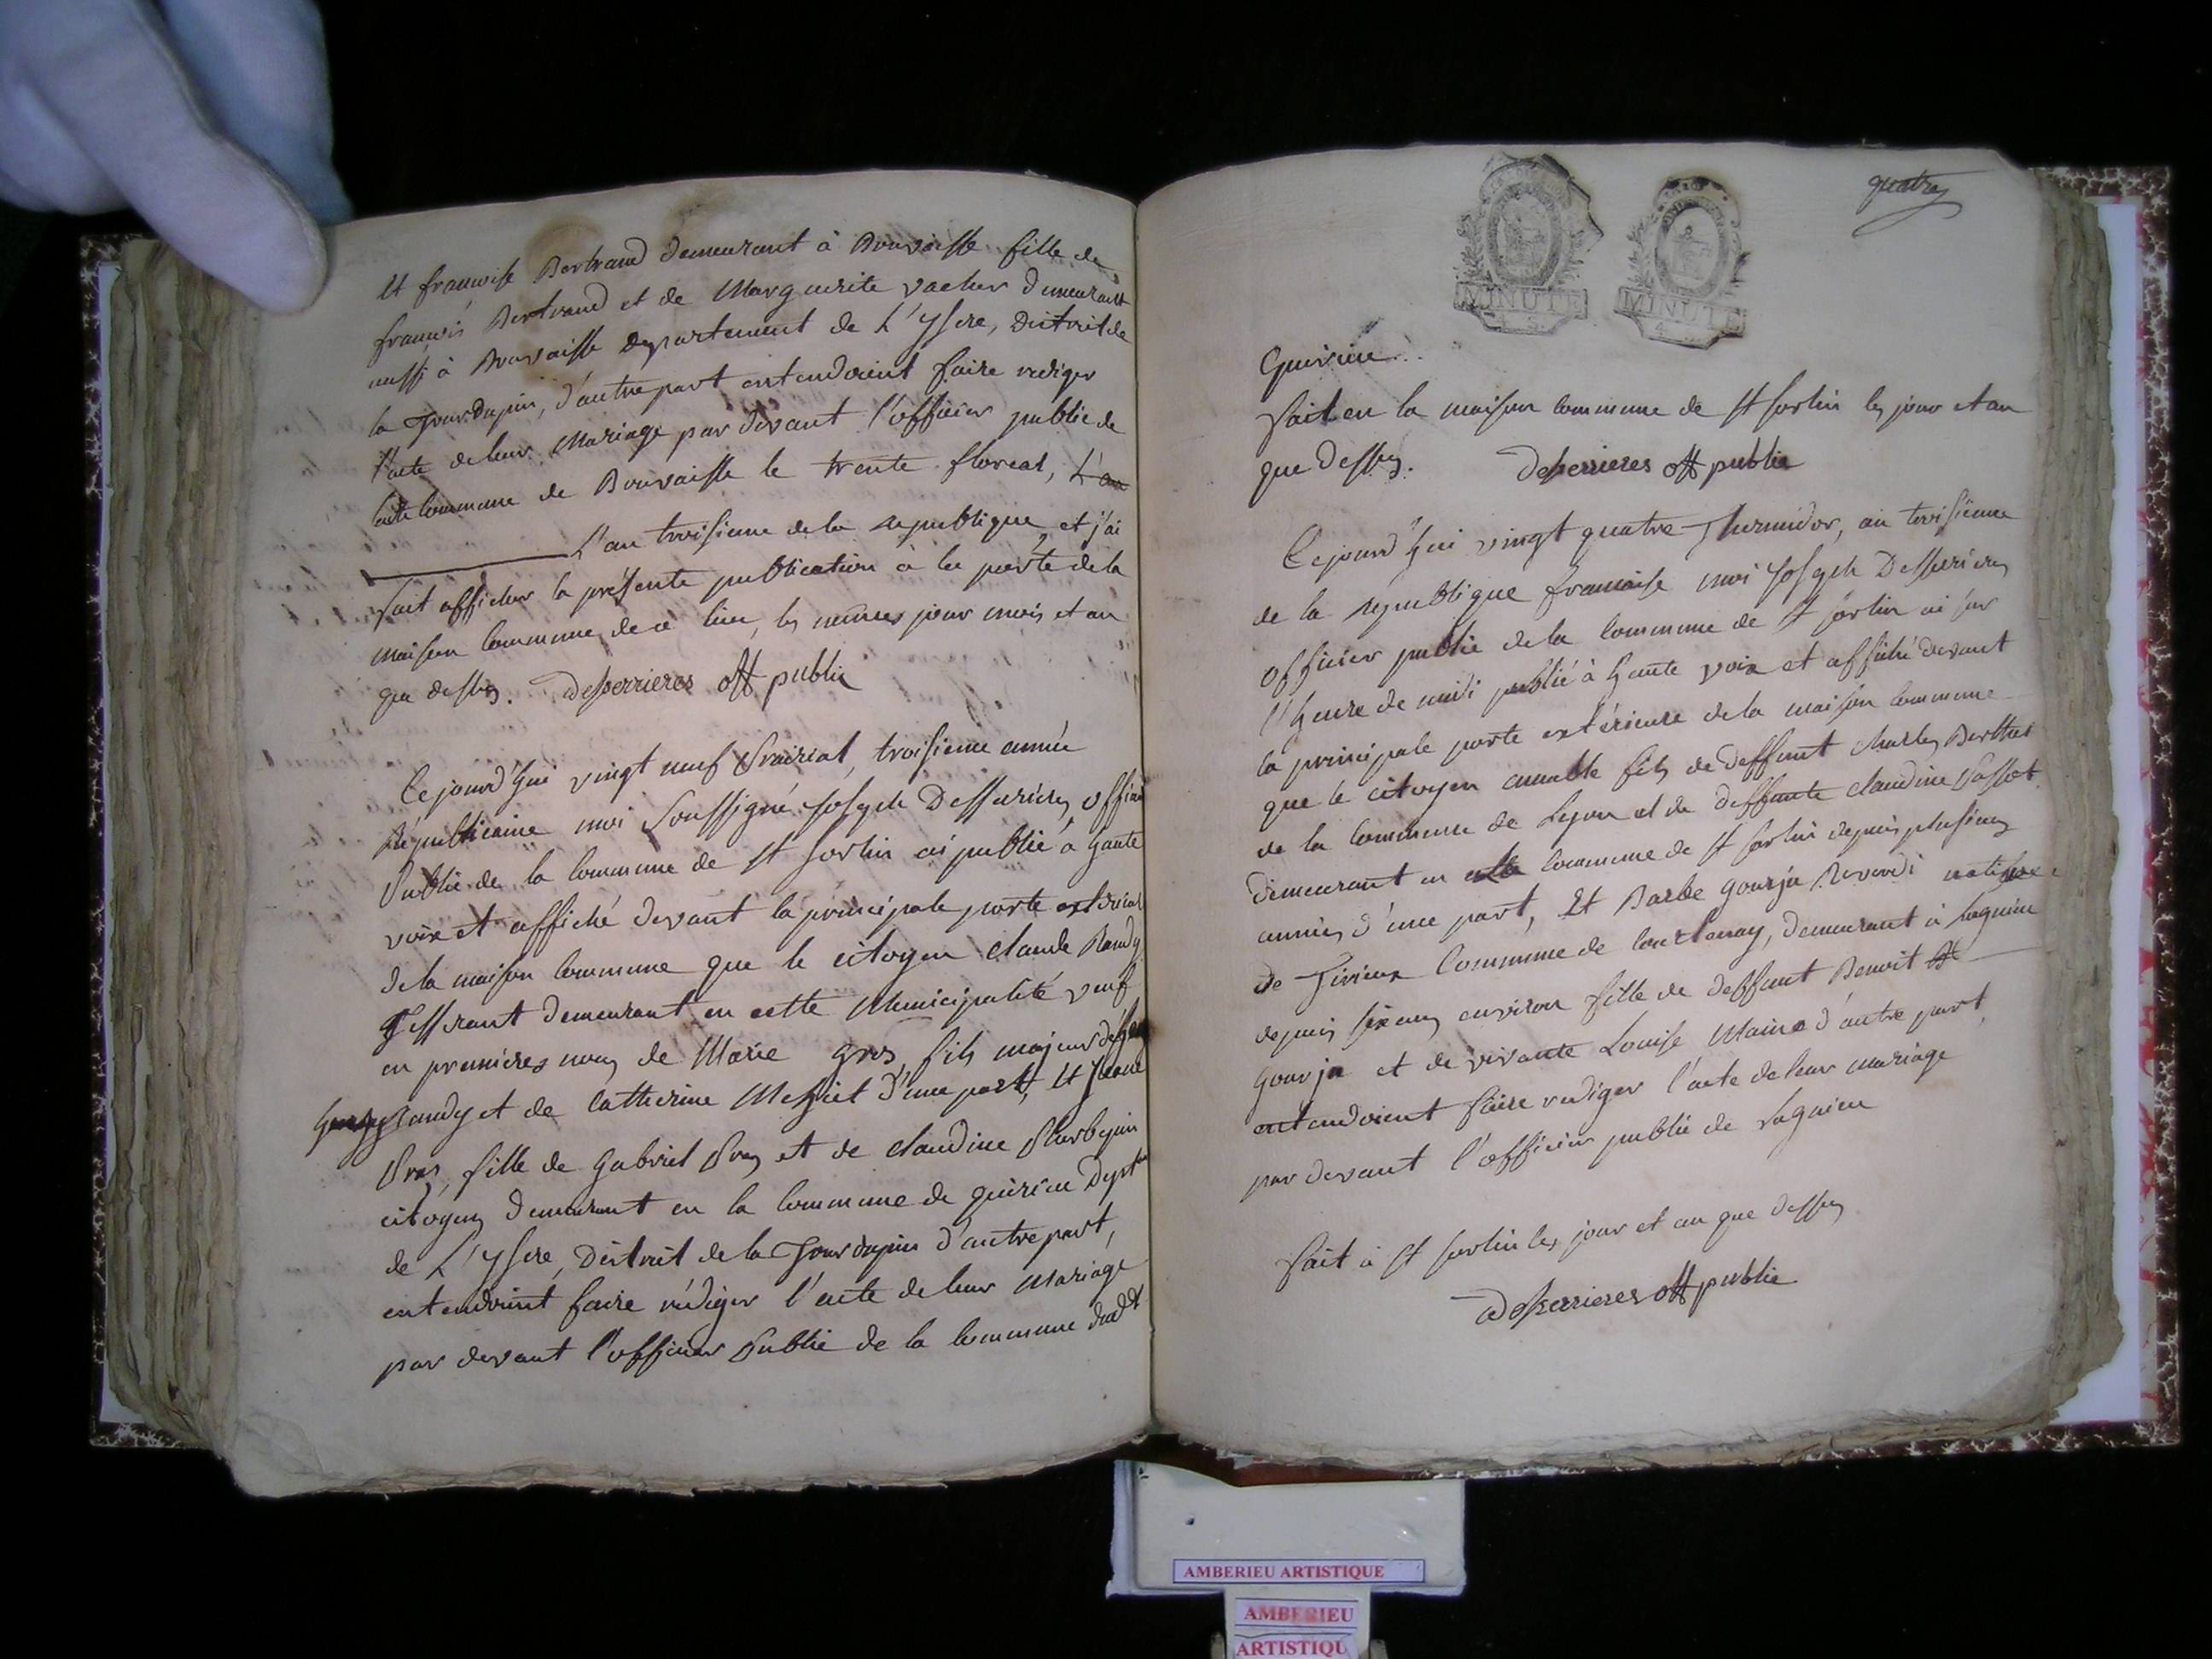 Et francoise Bertrand demeurant à Bouvaisse fille de
francois Bertrand et de Marguerite vacher demeurant
aussi à Bouvaisse departement de L'ysere, district de
la Tourdupin, d'autre part entendoient faire rediger
l'acte de leur Mariage par devant l'officier public de
laditte commune de Bouvaisse le trente floreal, L'an
L'an troisieme de la republique et j'ai
fait afficher la présente publication à la porte de la
maison commune de ce lieu, les mêmes jour mois et an
que dessus. desperrieres off public
Cejourd'hui vingt neuf Prairial, troisieme année
Républicaine moi soussigné Joseph Desperieres officier
Public de la commune de St sorlin ai publié à haute
voix et affiché devant la principale porte exterieure
de la maison commune que le citoyen claude Randy
Tisserant demeurant en cette Municipalité veuf
en premieres noces de Marie gros, fils majeur de
Randy et de Catherine d'une part, Et
Pras, fille de Gabriel Pras et de claudine
citoyens demeurant en la commune de quirieu Dept
de L'ysere, District de la Tourdupin d'autre part,
entendoient faire rédiger l'acte de leur Mariage
par devant l'officier Public de la commune dudt
quatre
MINUTE
4 S.
MINUTE
4
Quirieu.
fait en la maison commune de St sorlin les jour et an
que dessus. desperrieres off public
Cejourd'hui vingt quatre Thermidor, an troisieme
de la republique francaise moi Joseph Desperieres
officier public de la commune de St sorlin ai sur
l'heure de midi publié à haute voix et affiché devant
la principale porte extérieure de la maison commune
que le citoyen fils de deffunt charles Berthet
de la commune de Lyon et de deffunte claudine Passot
demeurant en cette commune de St sorlin depuis plusieurs
années d'une part, Et Barbe Gourju Revardi native
de Tirieux Commune de Courtenay, demeurant à Lagnieu
depuis six ans environ fille de deffunt Benoit
Gourju et de vivante Louise Maine d'autre part,
entendoient faire rediger l'acte de leur mariage
par devant l'officier public de Lagnieu
fait à St sorlin les jour et an que dessus
desperrieres off public
AMBERIEU ARTISTIQUE
AMBERIEU
ARTISTIQU